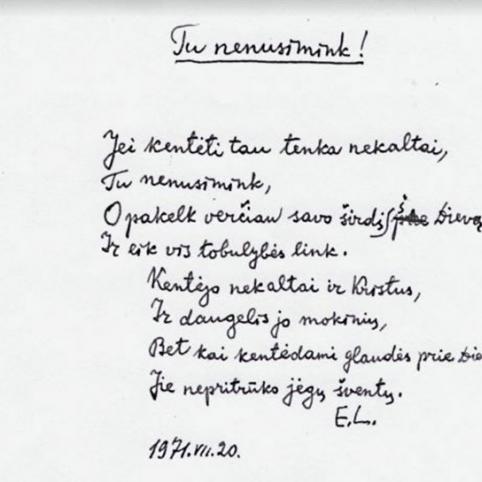 Tu nenusimink!
Jei kentėti tau tenka nekaltai,
Tu nenusimink,
O pakelk verčiau savo širdį į Dievą
Ir eik vis tobulybės link.
Kentėjo nekaltai ir Kristus,
Ir daugelis jo mokinių,
Bet kai kentėdami glaudės prie Die
Jie nepritrūko jėgų šventų.
E.L.
1971.VII.20.